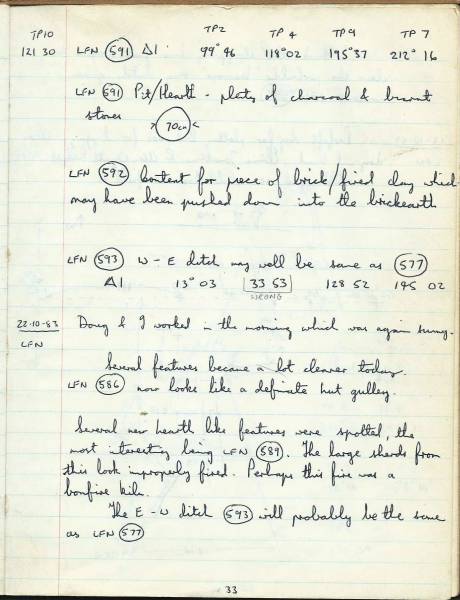 TP10 TP2 TP4 TP9 TP7
121 30 LFN 591 Δ1 99° 46 118° 02 195° 37 212° 16
LFN 591 Pit/Hearth - plenty of charcoal & burnt
stones > 70cm <
LFN 592 Context for piece of brick/fired clay which
may have been pushed down into the brickearth
LFN 593 W - E ditch may well be same as 577
Δ1 13° 03 33 53 128 52 145 02
WRONG
22-10-83 Doug & I worked in the morning which was again sunny.
LFN
Several features became a lot clearer today.
LFN 586 now looks like a definate hut gulley.
Several new hearth like features were spotted, the
most interesting being LFN 589. The large sherds from
this look improperly fired. Perhaps this fire was a
bonfire kiln.
The E - W ditch 593 will probably be the same
as LFN 577
33